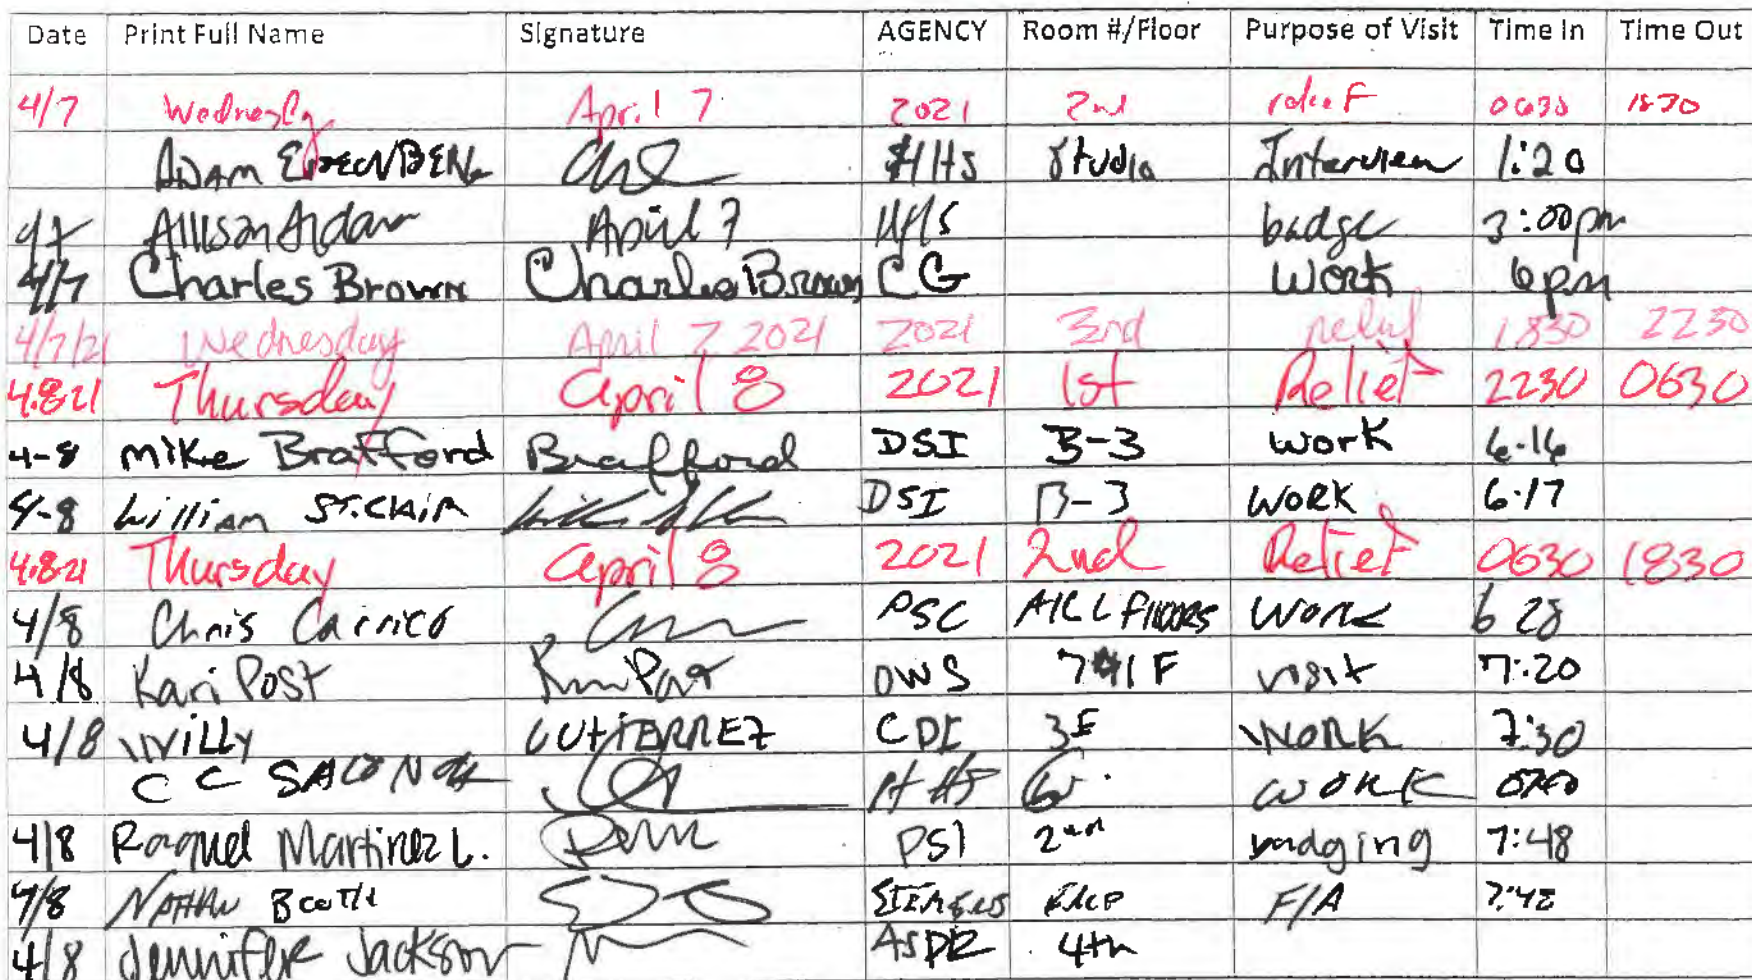 Date Print Full Name Signature AGENCY Room #/Floor Purpose of Visit Time In Time Out
4/7 Wednesday April 7 2021 2nd relief 0630 1830
ADAM HHS Studio Interview 1:20
4/7 Allison April 7 HHS badge 3:00pm
4/7 Charles Brown Charles Brown CG Work 6pm
4/7/21 Wednesday April 7 2021 2021 3rd relief 1830 2230
4.8.21 Thursday april 8 2021 1st Relief 2230 0630
4-8 mike Brafford Brafford DSI B-3 work 6-16
4-8 William ST.CLAIR DSI B-3 WORK 6-17
4.8.21 Thursday april 8 2021 2nd Relief 0630 1830
4/8 Chris Carrico PSC FLOORS WORK 6 28
4/8 Kari Post Kari Post OWS visit 7:20
4/8 WILLY GUTIERREZ CDI 3F WORK 7:30
C C HHS 6 WORK
4/8 Raquel Martinez L. PSI 2nd badging 7:48
4/8 NATHAN F/A 7:48
4/8 Jennifer Jackson ASPR 4th